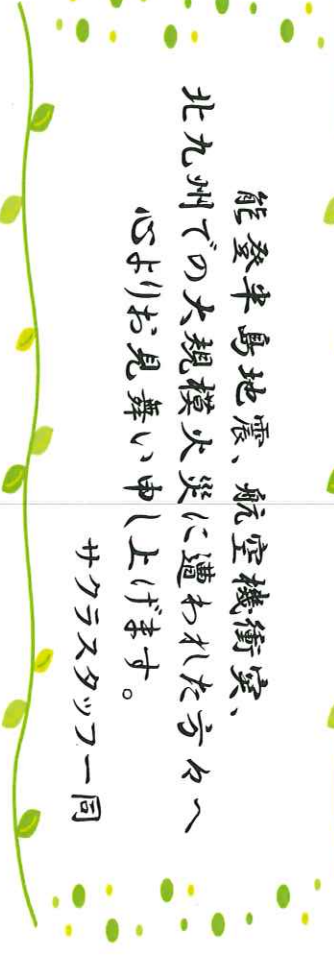 能登半島地震、航空機衝突、
北九州での大規模火災に遭われた方々へ
心よりお見舞い申し上げます。
サクラスタッフ一同